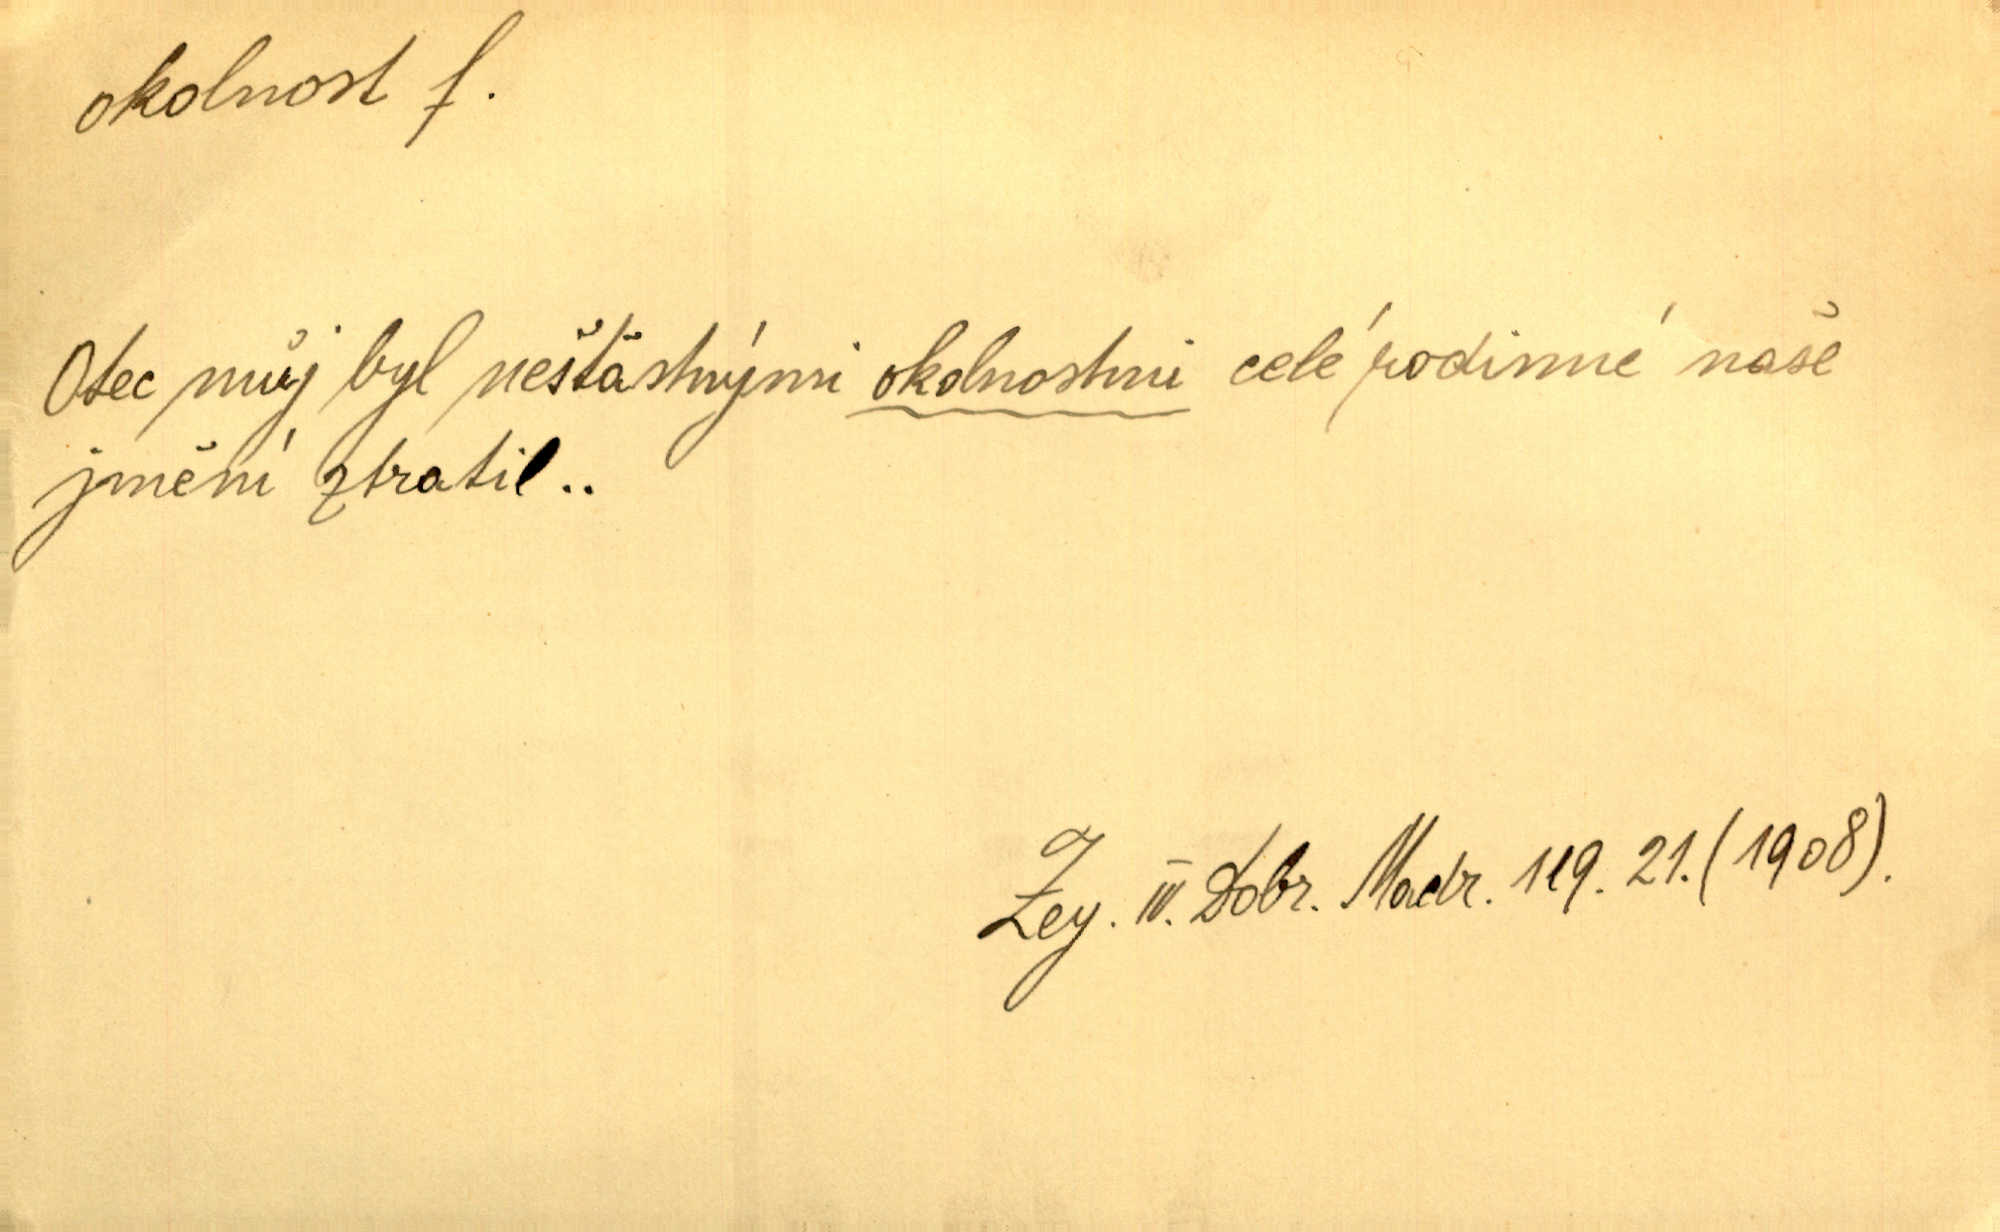 okolnost f.
Otec můj byl neštăstnými okolnostmi celé rodinné naše
jmění ztratil..
Zey. III. Dobr. Madr. 119. 21. (1908).